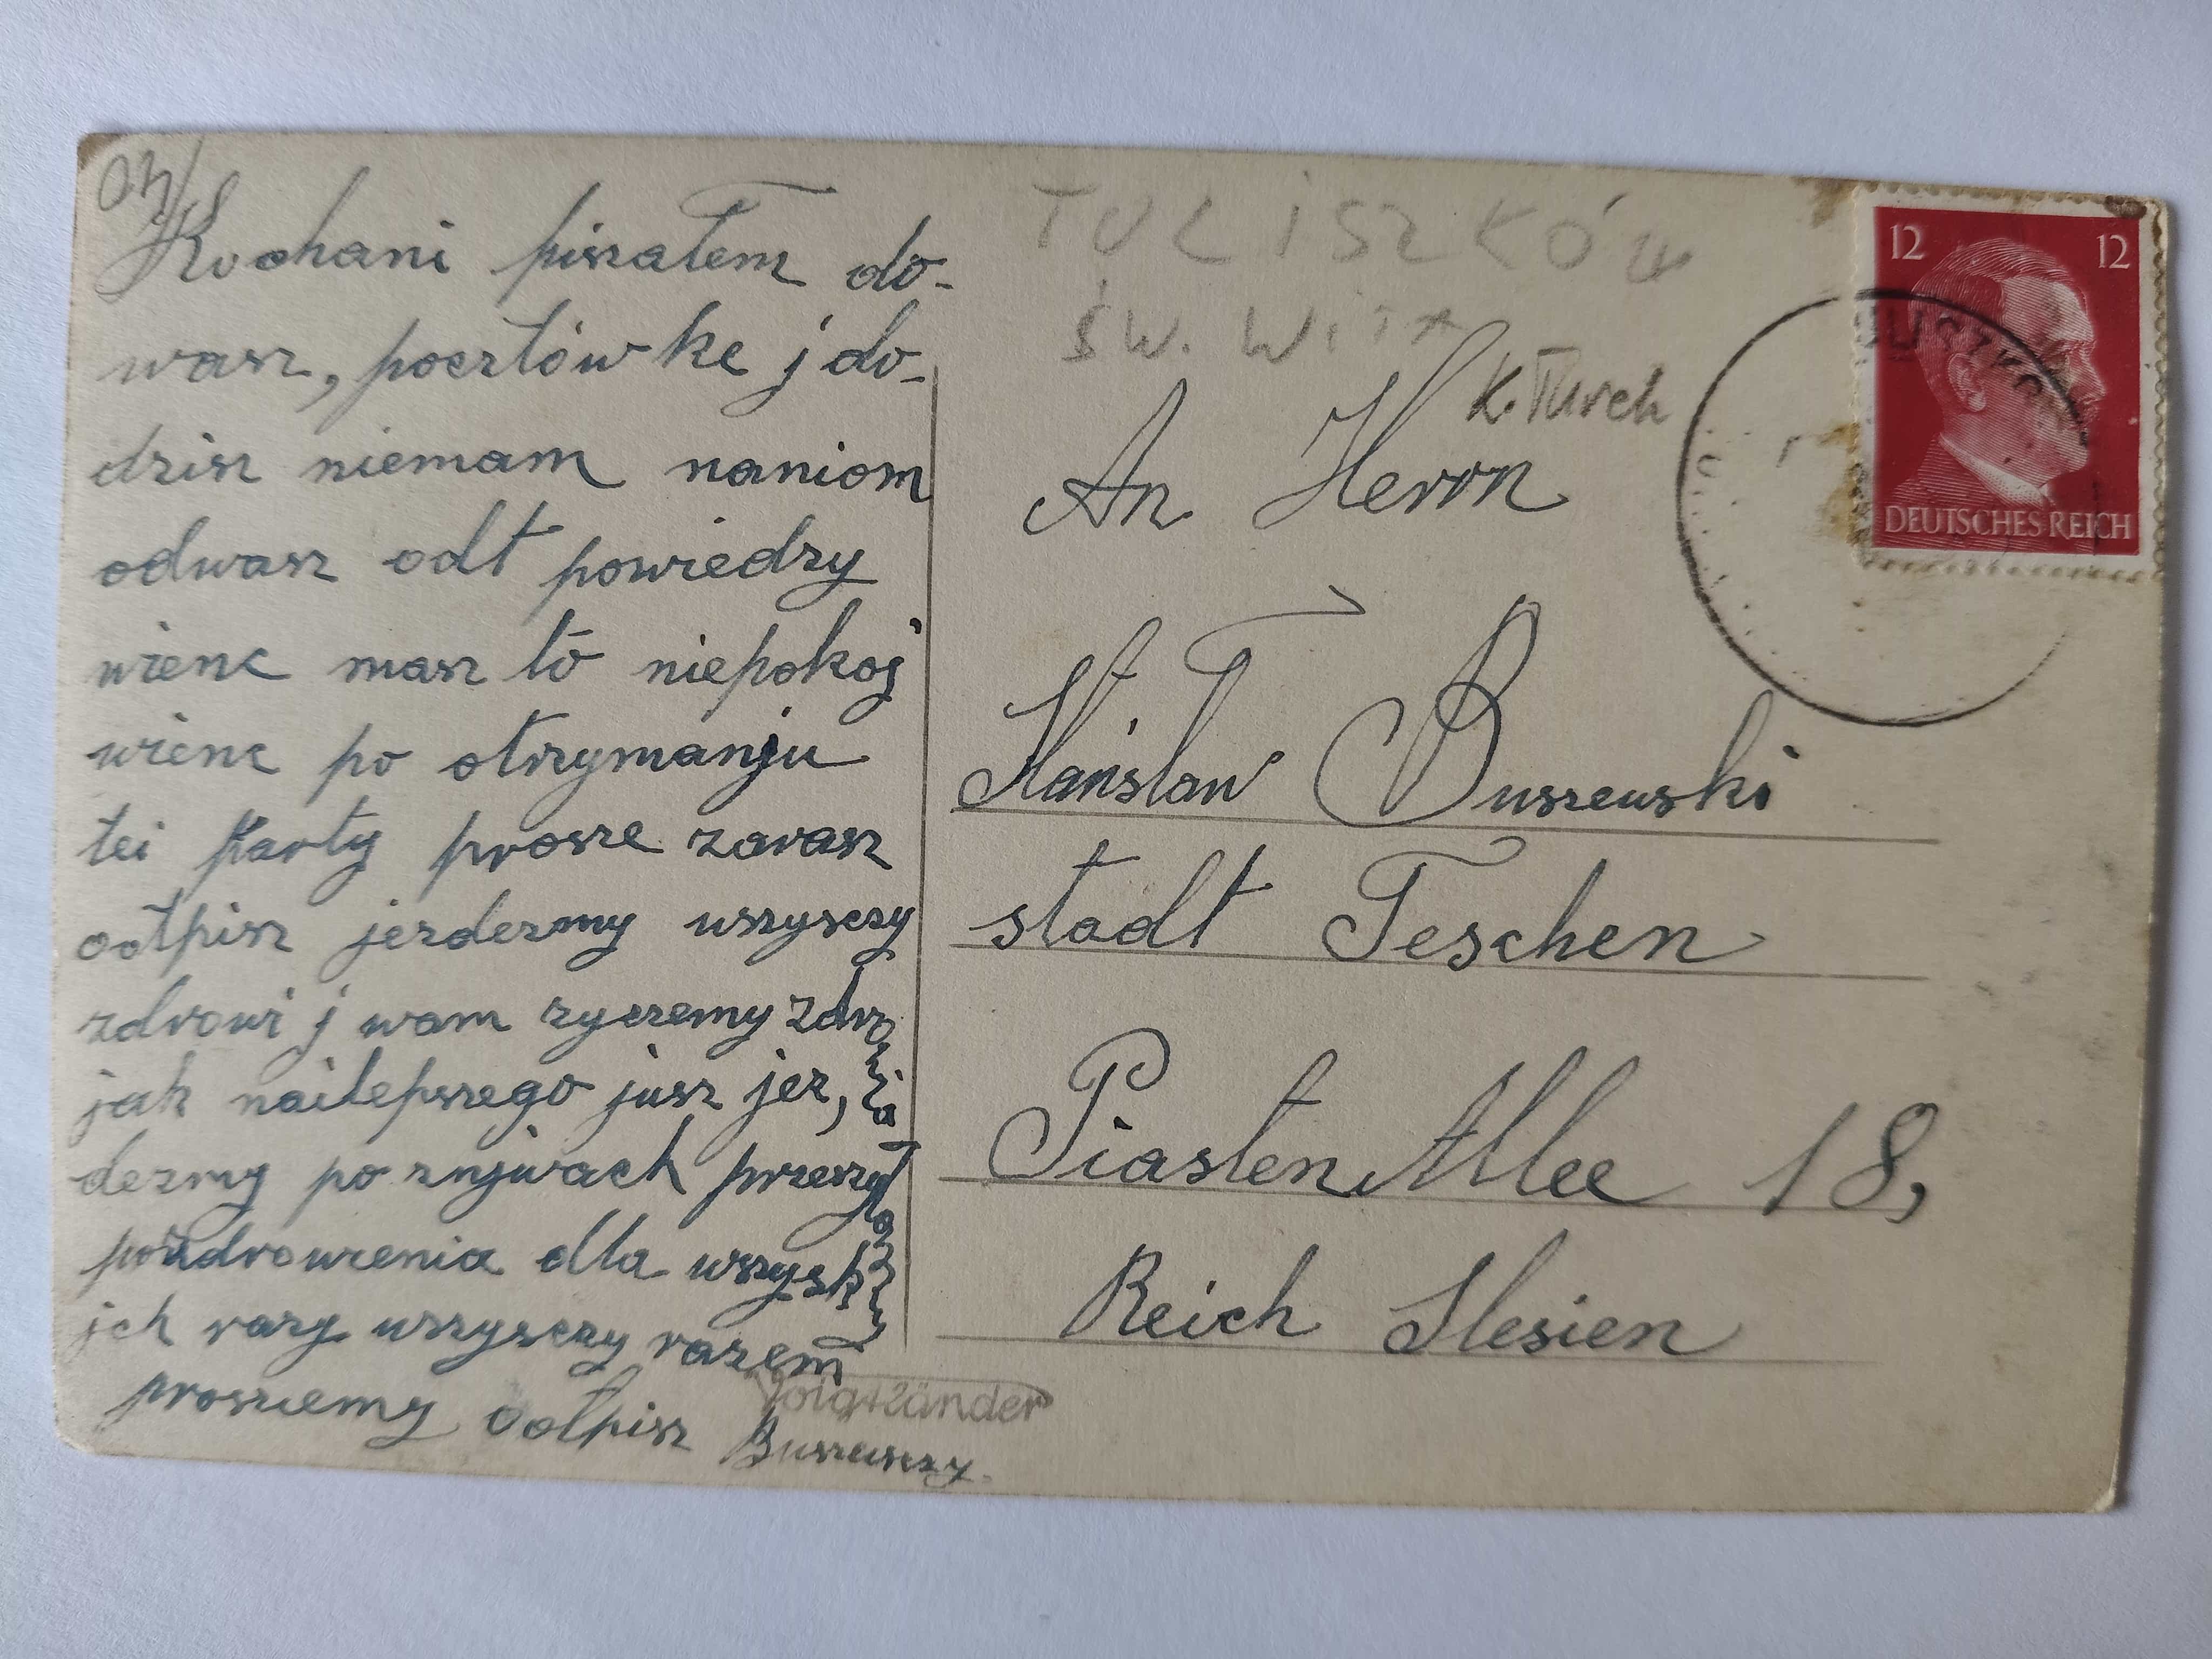 Kochani piszałem do-
wasz, pocztówke j do-
dzisz niemam naniom
odwasz odt powiedzy
wienc masz to niepokoj
wienc po otrzymanju
tei karty prosze zarasz
odtpisz jezdezmy wszysczy
zdrowi j wam zyczemy zdro
wia
jak nailepszego jusz jez,
dezmy po znjwach przeszył
amy
pozdrowienia dla wszysk
jch razy wszysczy razem
prosziemy odtpisz Buszewsczy.
Voigtländer
TULISZKÓW
ŚW. WITA
K. Turek
12 12
DEUTSCHES REICH
An Herrn
Stanisław Buszewski
stadt Teschen
Piasten Allee 18,
Reich Slesien